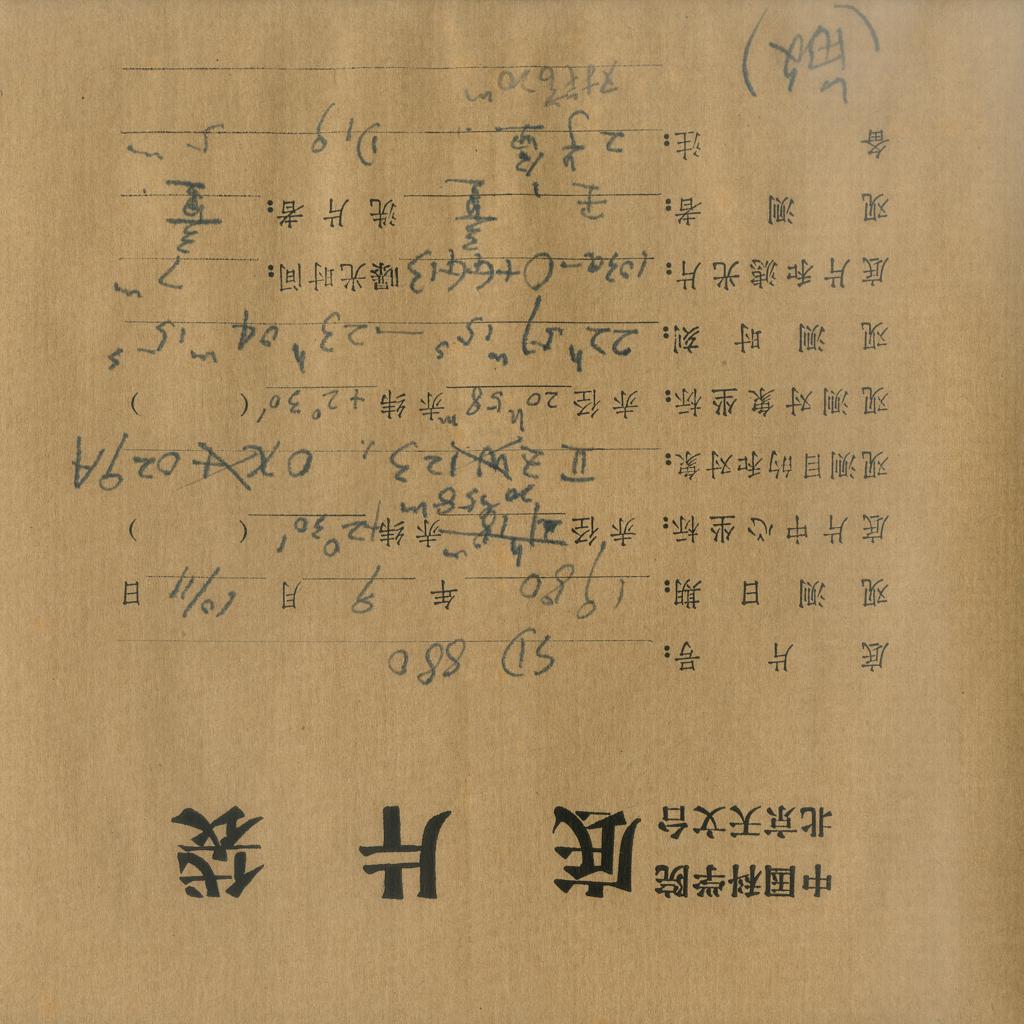 中国科学院
北京天文台
底片袋
底片号: SD 880
观测日期: 1980 年 9 月 10/11 日
底片中心坐标: 赤径 赤纬 +2°30′ ( )
20h58m
观测目的和对象: Ⅲ Zw 123, OX+029A
观测对象坐标: 赤径 20h58m 赤纬 +2°30′ ( )
观测时刻: 22h57m15s — 23h04m15s
底片和滤光片: 103a-O+GG13 曝光时间: 7m
观测者: 王, 洗片者:
备注: 2号 D19 5m
20m